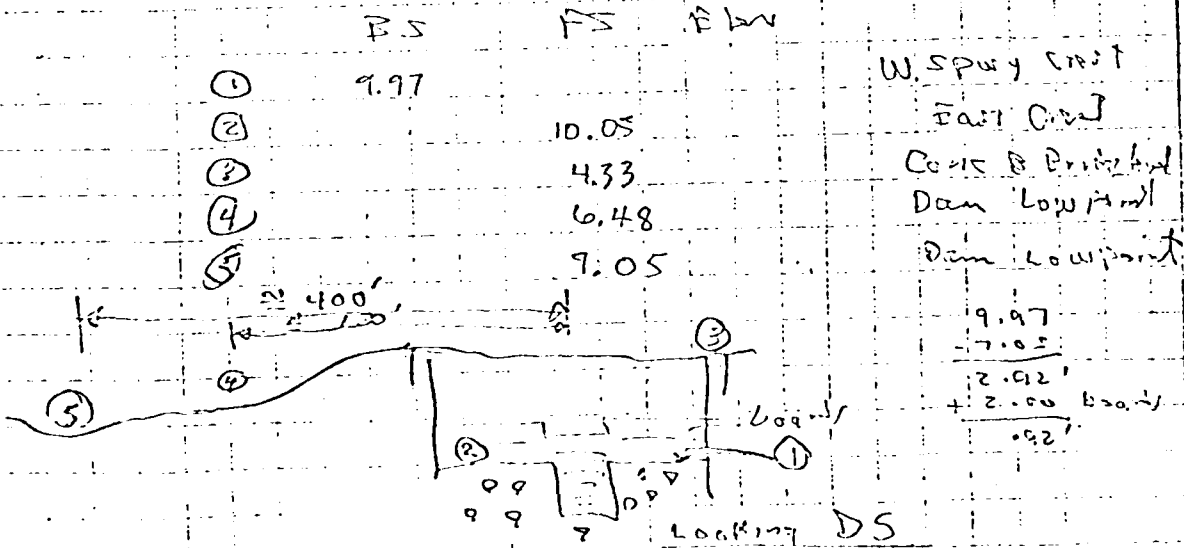 BS FS Elev
① 9.97 W. Spwy Crest
② 10.05 East Crest
③ 4.33 Conc B
④ 6.48 Dam Lowpoint
⑤ 7.05 Dam Lowpoint
≈ 400'
9.97
- 7.05
2.92'
+ 2.00 boards
.92'
③
④
⑤
②
Boards
①
Looking DS